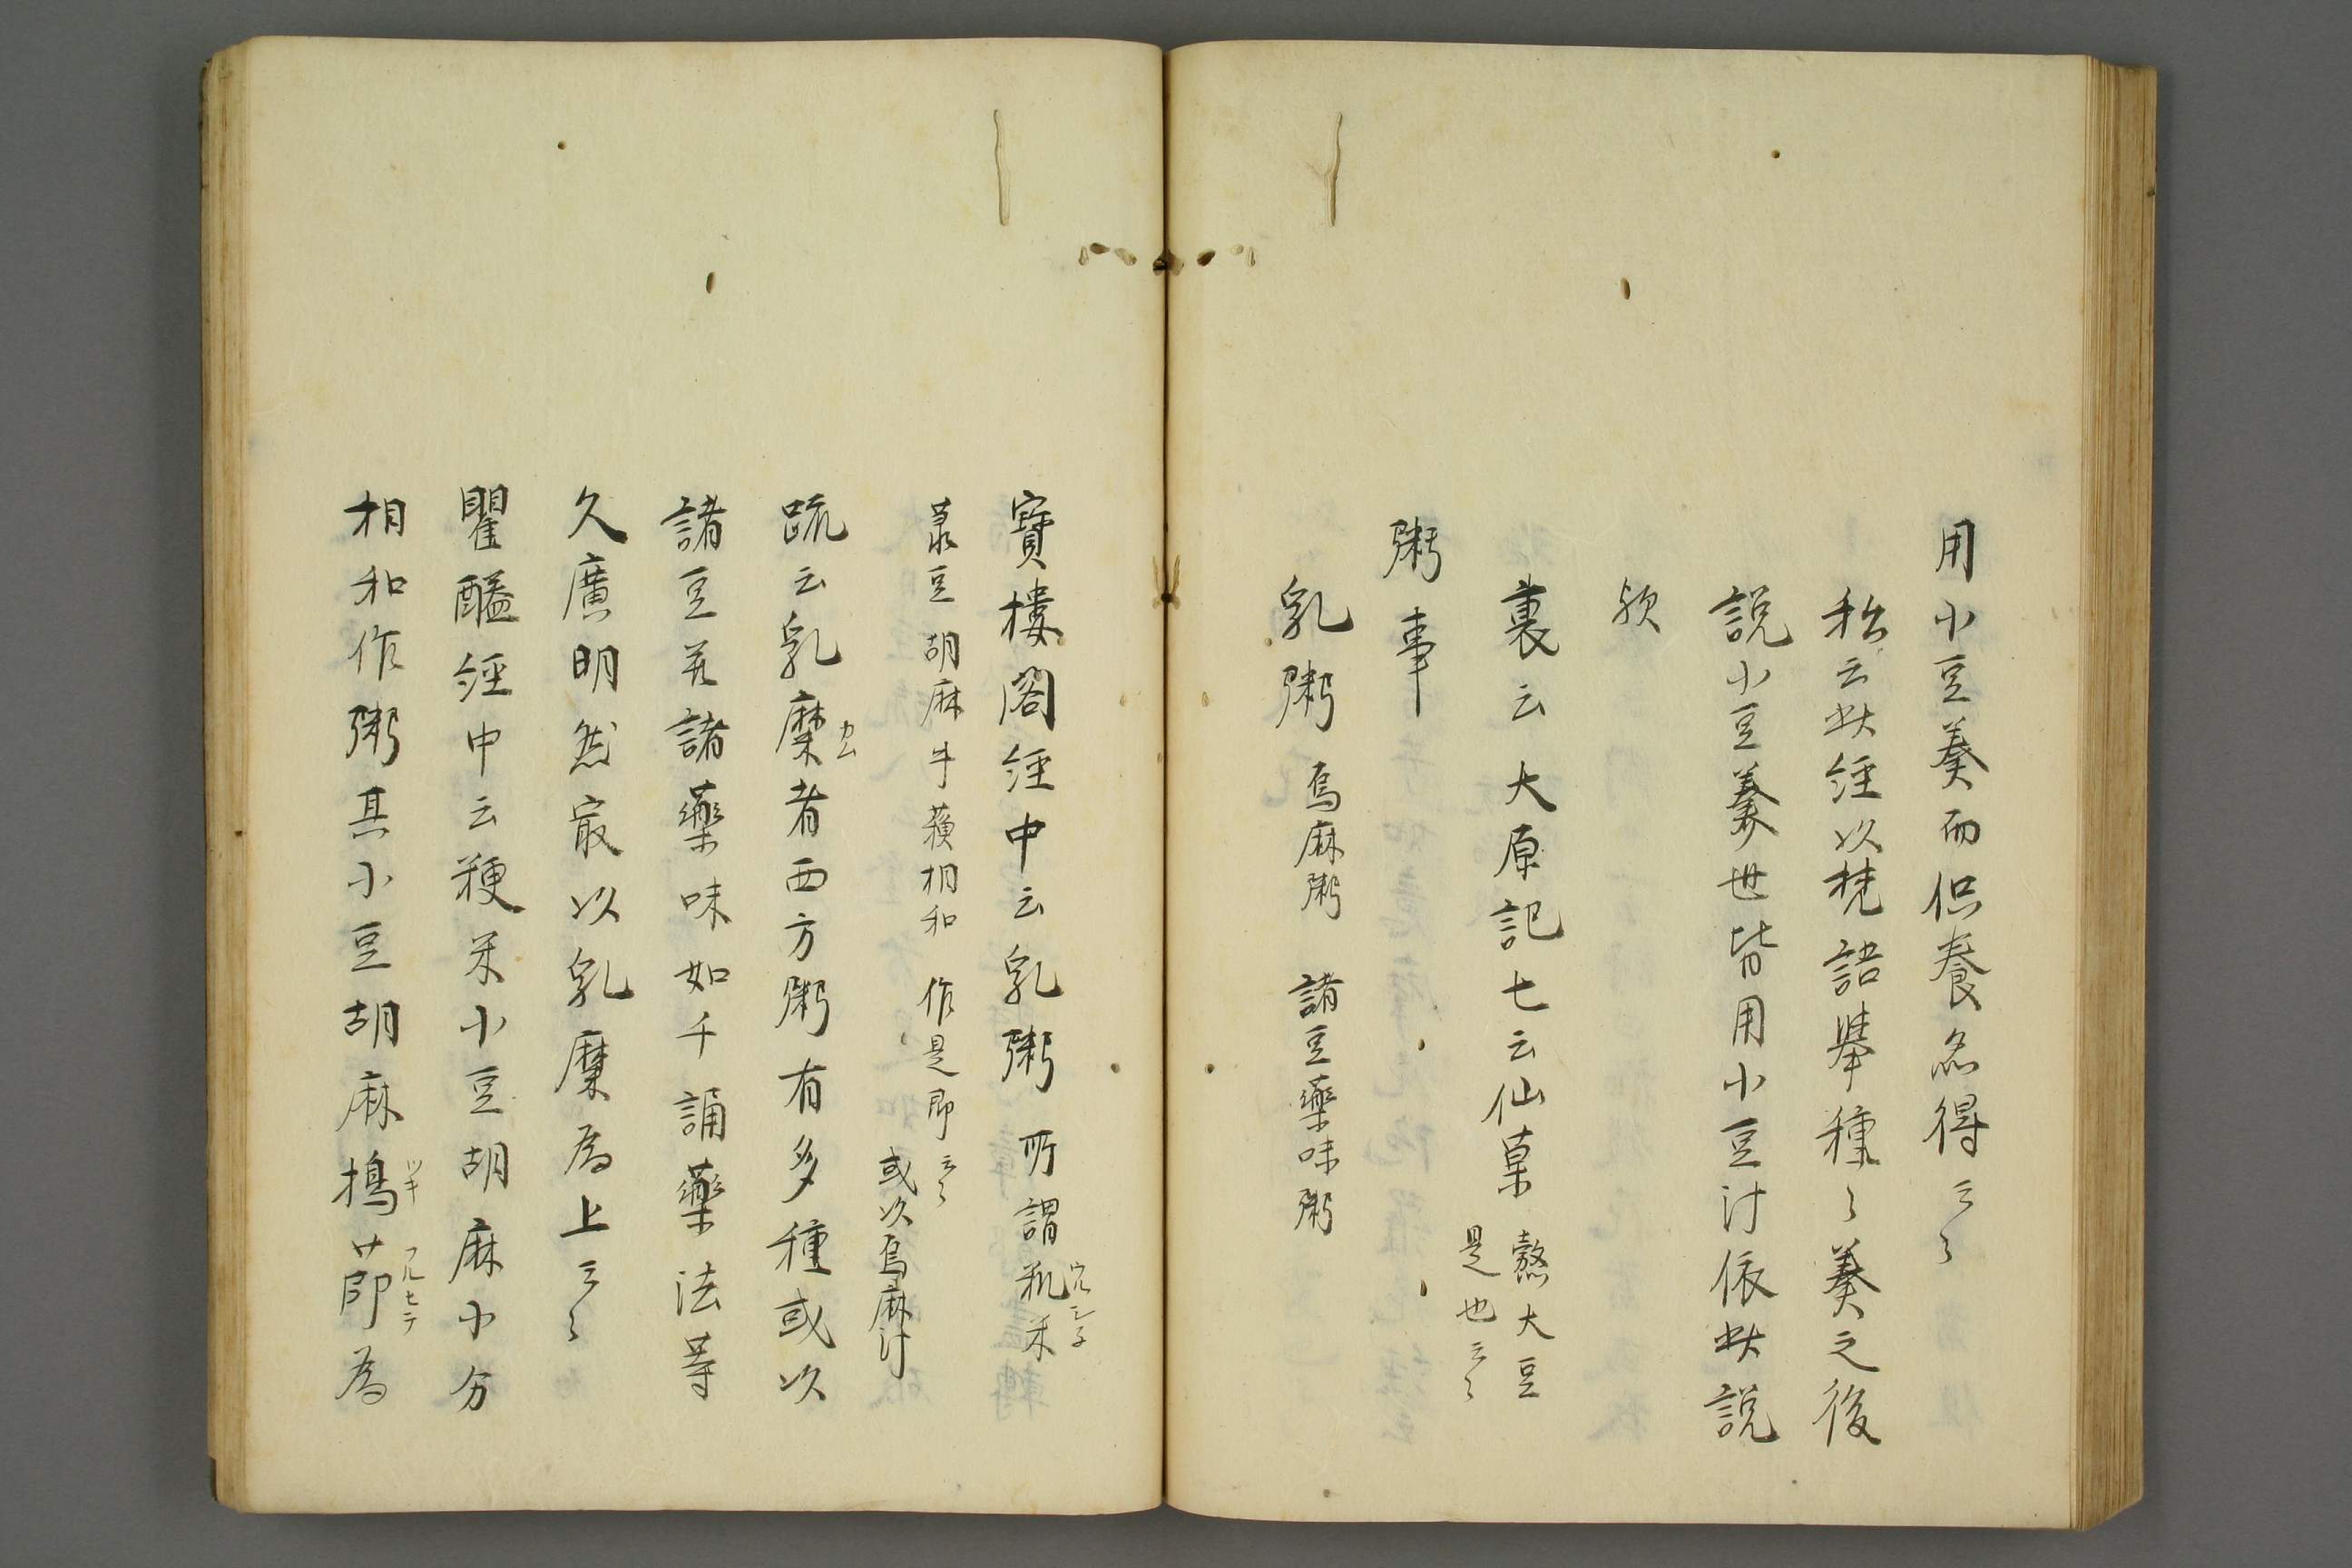 用小豆羹而供養念得云々
私云此經以梵語舉種々羹之後
說小豆羹世皆用小豆汁依此說
欤
裏云大原記七云仙菓 熬大豆
是也云々
粥事
乳粥 烏麻粥 諸豆藥味粥
寶樓閣經中云乳粥所謂粃米
菉豆胡麻牛蘇相和 作是即云々
或以烏麻汁
疏云乳糜者西方粥有多種或以
カユ
諸豆并諸藥味如千誦藥法等
久廣明然最以乳糜為上云々
瞿醯經中云粳米小豆胡麻小分
相和作粥其小豆胡麻搗 為
ツキ フルヒテ